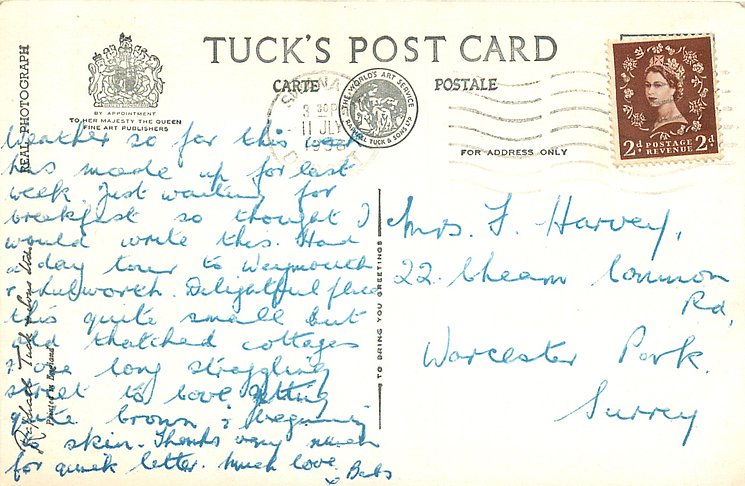 TUCK'S POST CARD
CARTE POSTALE
REAL PHOTOGRAPH
BY APPOINTMENT
TO HER MAJESTY THE QUEEN
FINE ART PUBLISHERS
THE WORLD'S ART SERVICE
RAPHAEL TUCK & SONS LTD
3 30PM
11 JLY
1956
FOR ADDRESS ONLY
2d POSTAGE REVENUE 2d
Weather so far this week
has made up for last
week. Just waiting for
breakfast so thought I
would write this. Had
a day tour to Weymouth
& Lulworth. Delightful place
this quite small but
old thatched cottages
& one long straggling
street to Cove. Getting
quite brown & beginning
to skin. Thanks very much
for quick letter. Much love
x Babs
TO BRING YOU GREETINGS
Raphael Tuck & Sons Ltd.
Printed in England
Mrs. F. Harvey,
22. Cheam Common
Rd,
Worcester Park.
Surrey